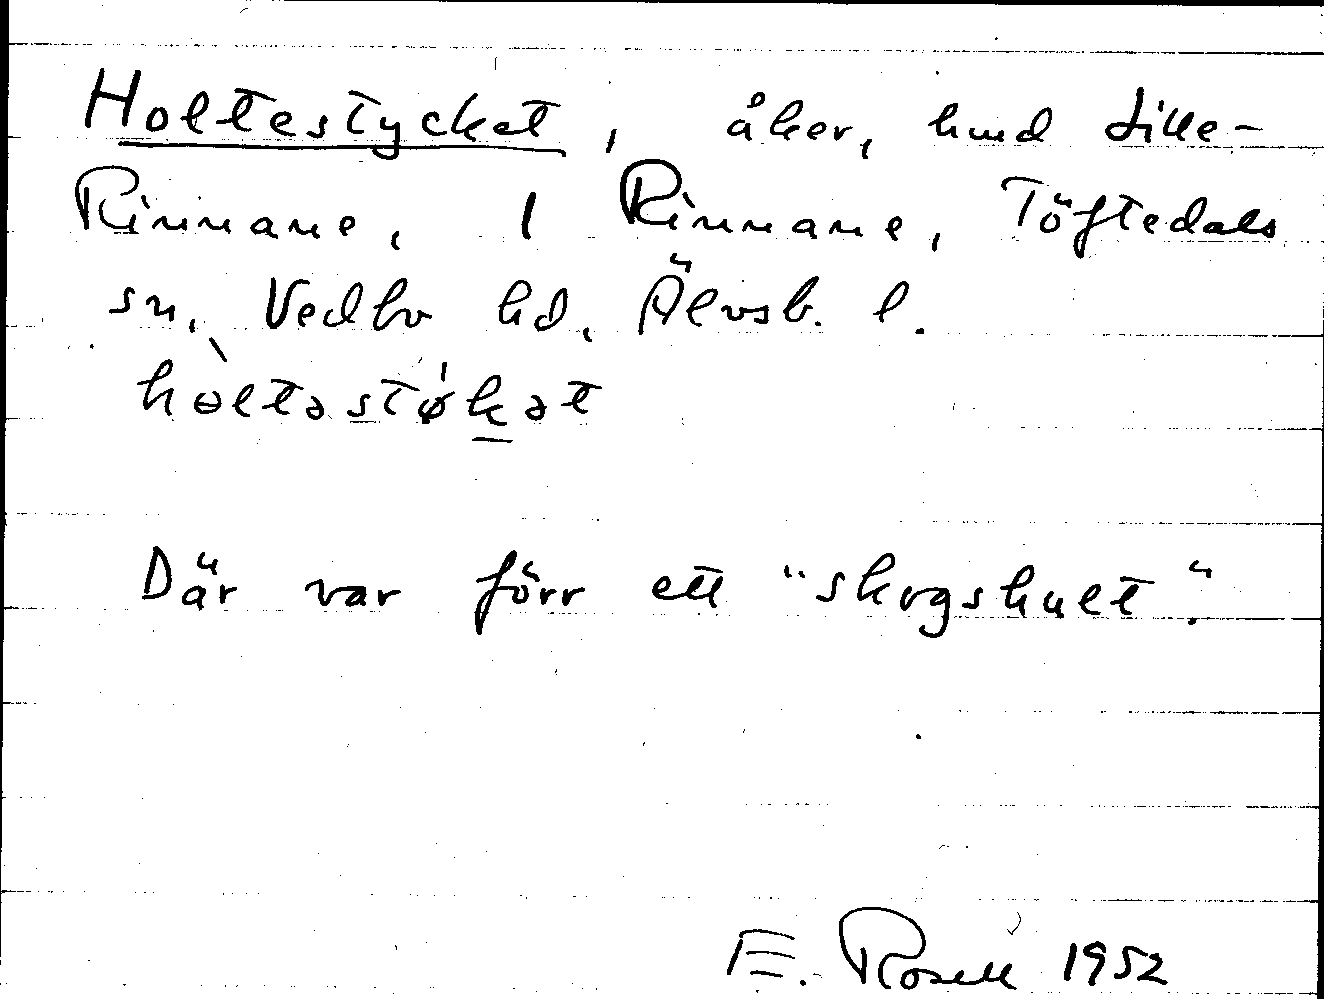 Holtestycket, åker, hmd Lille-
Rinnane, 1 Rinnane, Töftedals
sn, Vedbo hd, Älvsb. l.
hòltəstǿkət
Där var förr ett "skogshult".
E. Rosell 1952